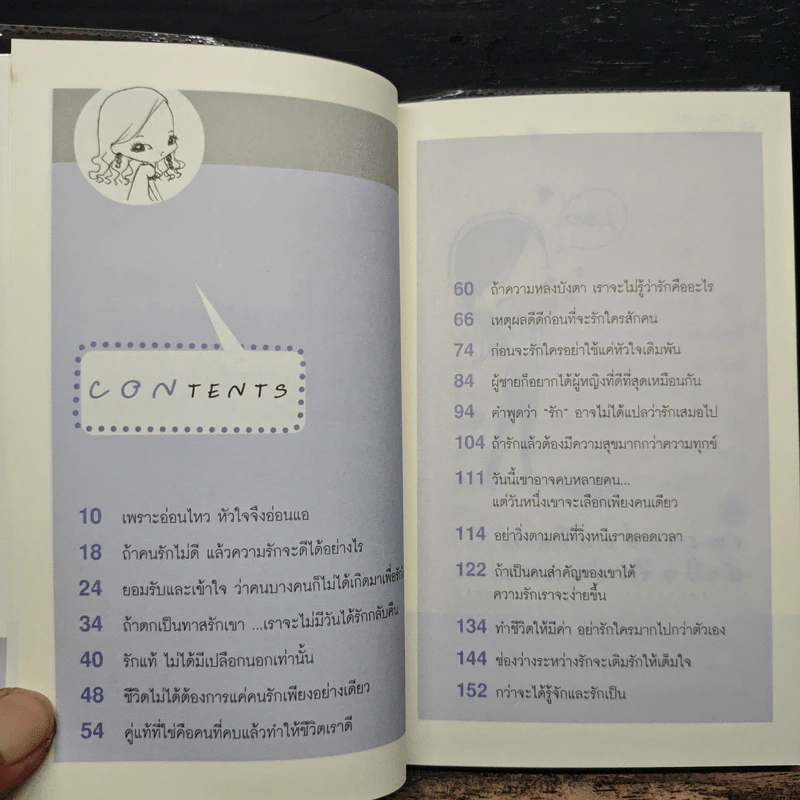 CONTENTS
10 เพราะอ่อนไหว หัวใจจึงอ่อนแอ
18 ถ้าคนรักไม่ดี แล้วความรักจะดีได้อย่างไร
24 ยอมรับและเข้าใจ ว่าคนบางคนก็ไม่ได้เกิดมาเพื่อรัก
34 ถ้าตกเป็นทาสรักเขา ...เราจะไม่มีวันได้รักกลับคืน
40 รักแท้ ไม่ได้มีเปลือกนอกเท่านั้น
48 ชีวิตไม่ได้ต้องการแค่คนรักเพียงอย่างเดียว
54 คู่แท้ที่ใช่คือคนที่คบแล้วทำให้ชีวิตเราดี
60 ถ้าความหลงบังตา เราจะไม่รู้ว่ารักคืออะไร
66 เหตุผลดีดีก่อนที่จะรักใครสักคน
74 ก่อนจะรักใครอย่าใช้แค่หัวใจเดิมพัน
84 ผู้ชายก็อยากได้ผู้หญิงที่ดีที่สุดเหมือนกัน
94 คำพูดว่า "รัก" อาจไม่ได้แปลว่ารักเสมอไป
104 ถ้ารักแล้วต้องมีความสุขมากกว่าความทุกข์
111 วันนี้เขาอาจคบหลายคน...
แต่วันหนึ่งเขาจะเลือกเพียงคนเดียว
114 อย่าวิ่งตามคนที่วิ่งหนีเราตลอดเวลา
122 ถ้าเป็นคนสำคัญของเขาได้
ความรักเราจะง่ายขึ้น
134 ทำชีวิตให้มีค่า อย่ารักใครมากไปกว่าตัวเอง
144 ช่องว่างระหว่างรักจะเติมรักให้เต็มใจ
152 กว่าจะได้รู้จักและรักเป็น